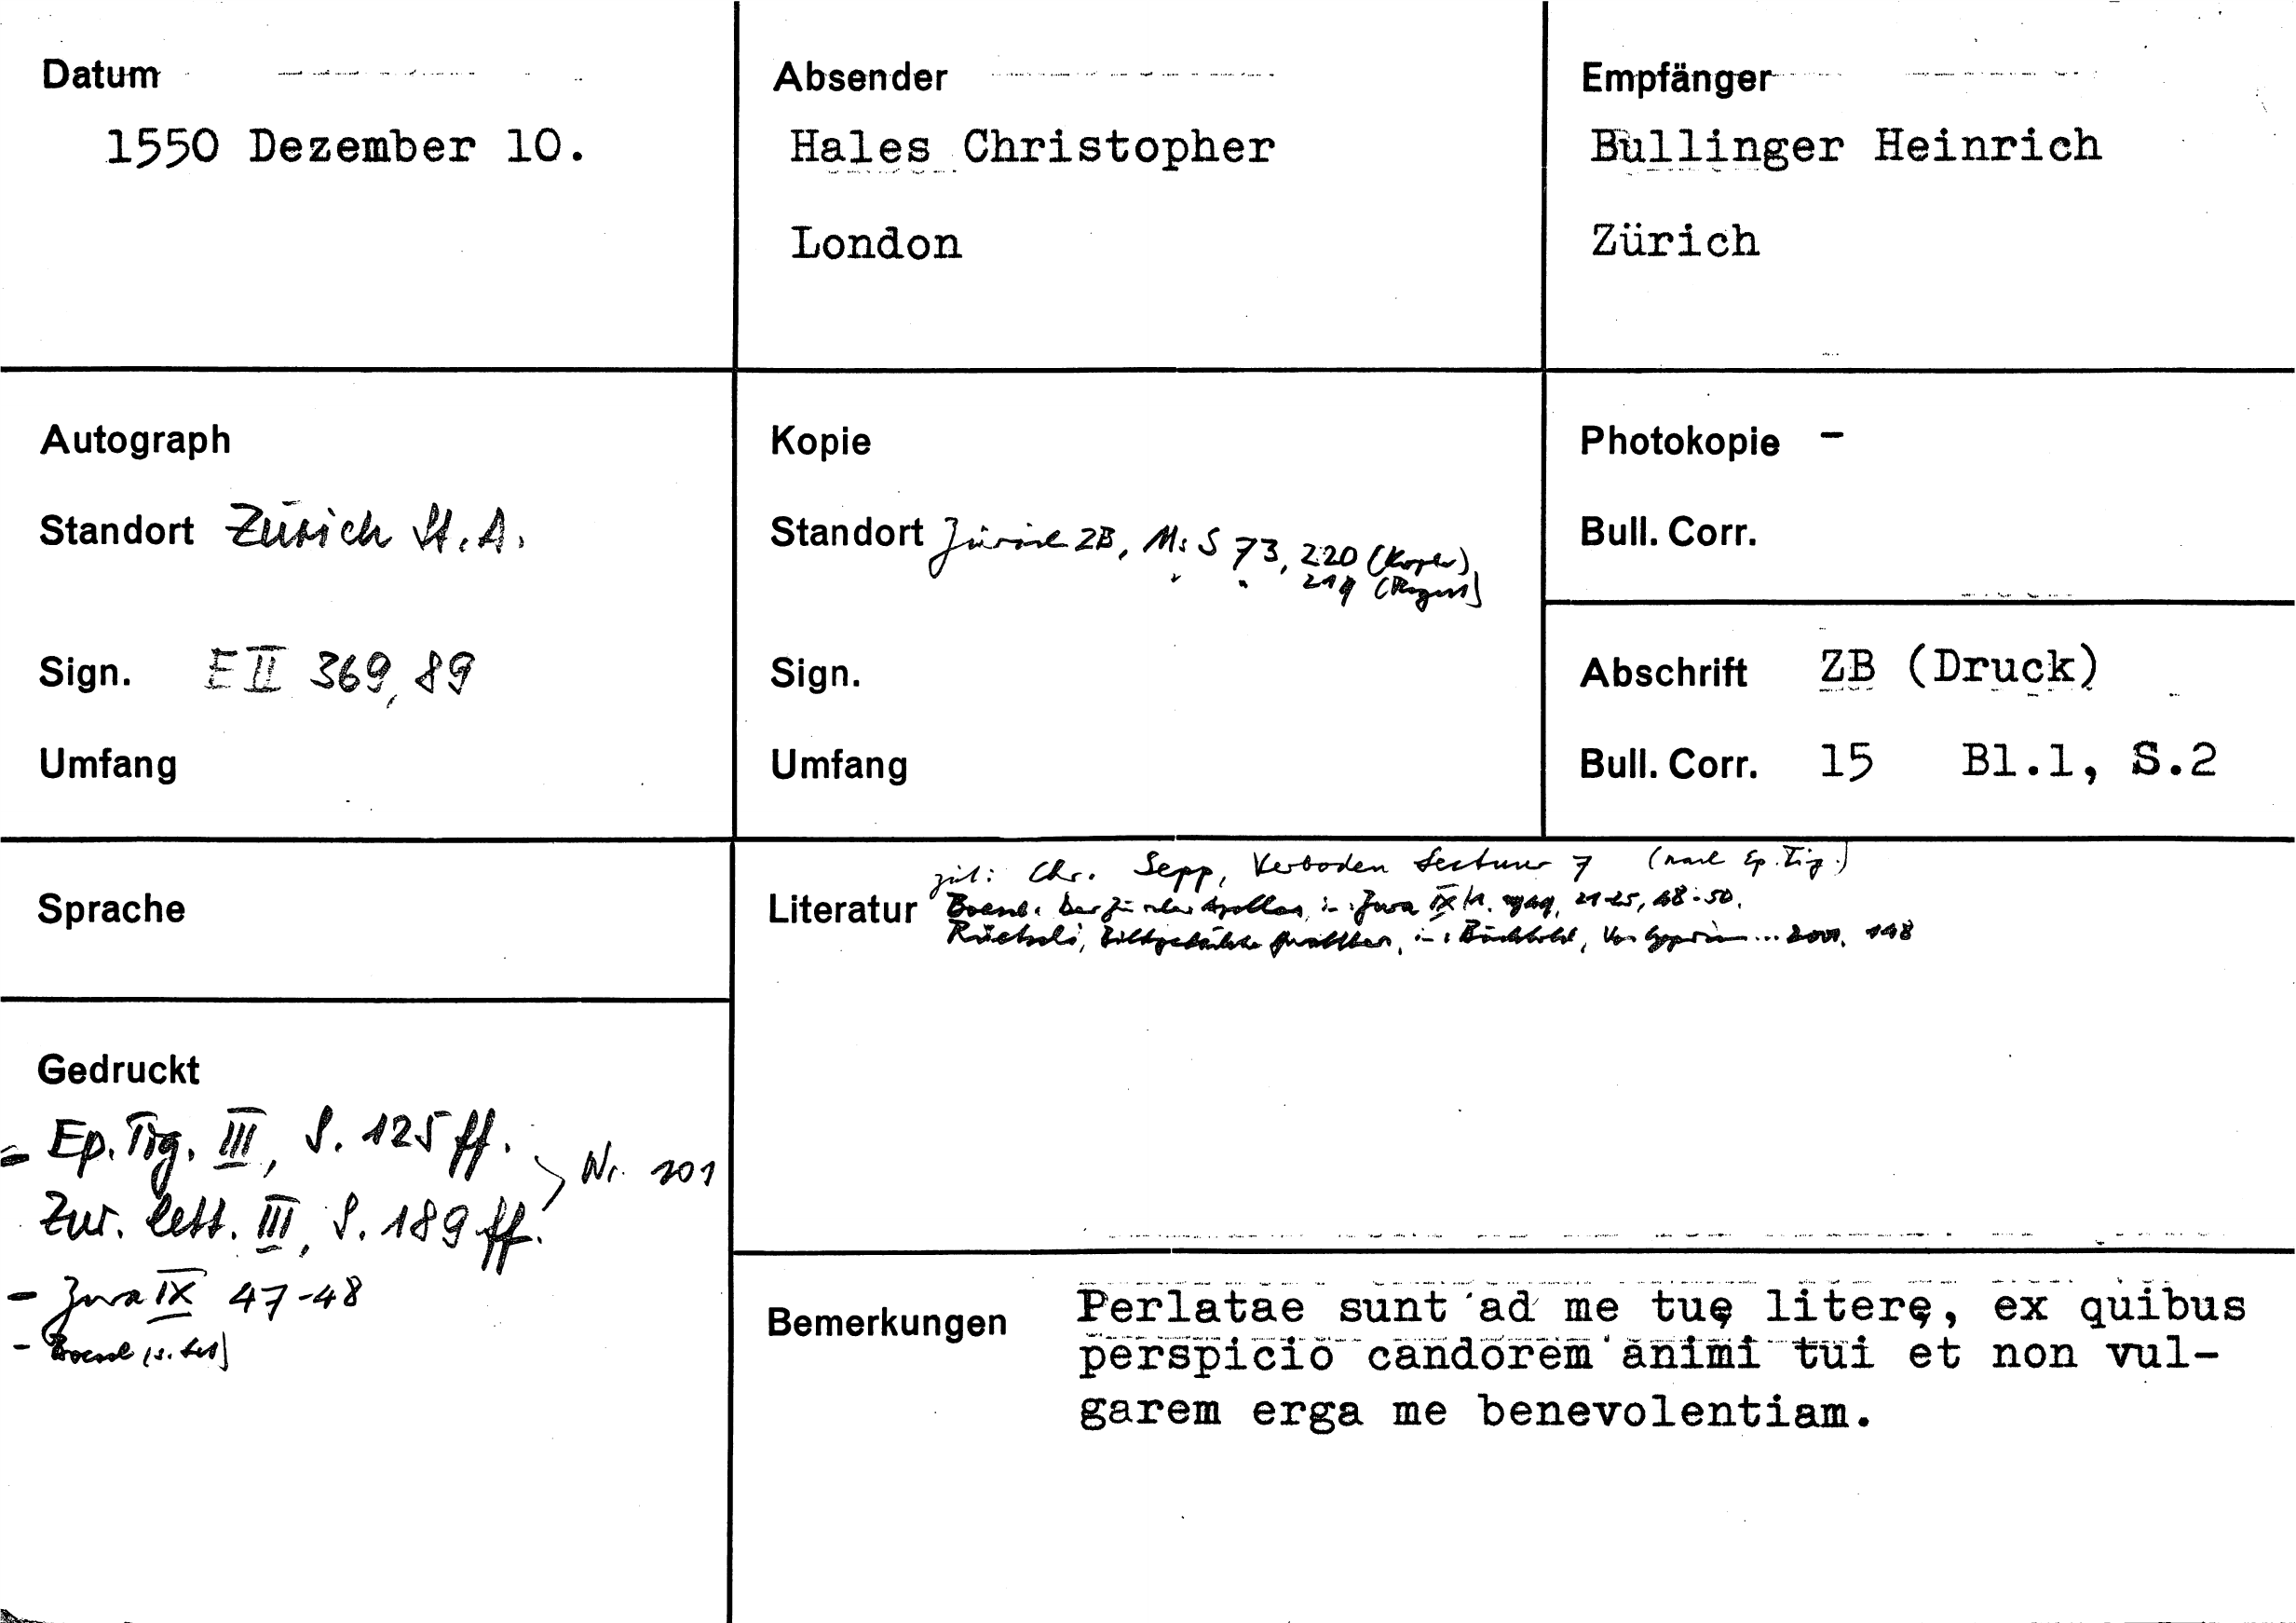 Datum
1550 Dezember 10.
Absender
Hales Christopher
London
Empfänger
Bullinger Heinrich
Zürich
Autograph
Standort Zürich St. A.
Sign. E II 369, 89
Umfang
Kopie
Standort Zürich ZB, Ms S 73, 220 (Kopie)
" " 219 (Regest)
Sign.
Umfang
Photokopie –
Bull. Corr.
Abschrift ZB (Druck)
Bull. Corr. 15 Bl.1, S.2
Sprache
Literatur
zit: Chr. Sepp, Verboden Lectuur 7 (nach Ep. Tig.)
Boesch, Der Zürcher Apelles, in: Zwa IX/1. 1949, 21-25, 48-50.
in: 2001, 148
Gedruckt
= Ep. Tig. III, S. 125 ff.
Nr. 101
Zur. lett. III, S. 189 ff.
- Zwa IX 47-48
- Boesch (s. Lit)
Bemerkungen
Perlatae sunt ad me tuę literę, ex quibus
perspicio candorem animi tui et non vul-
garem erga me benevolentiam.